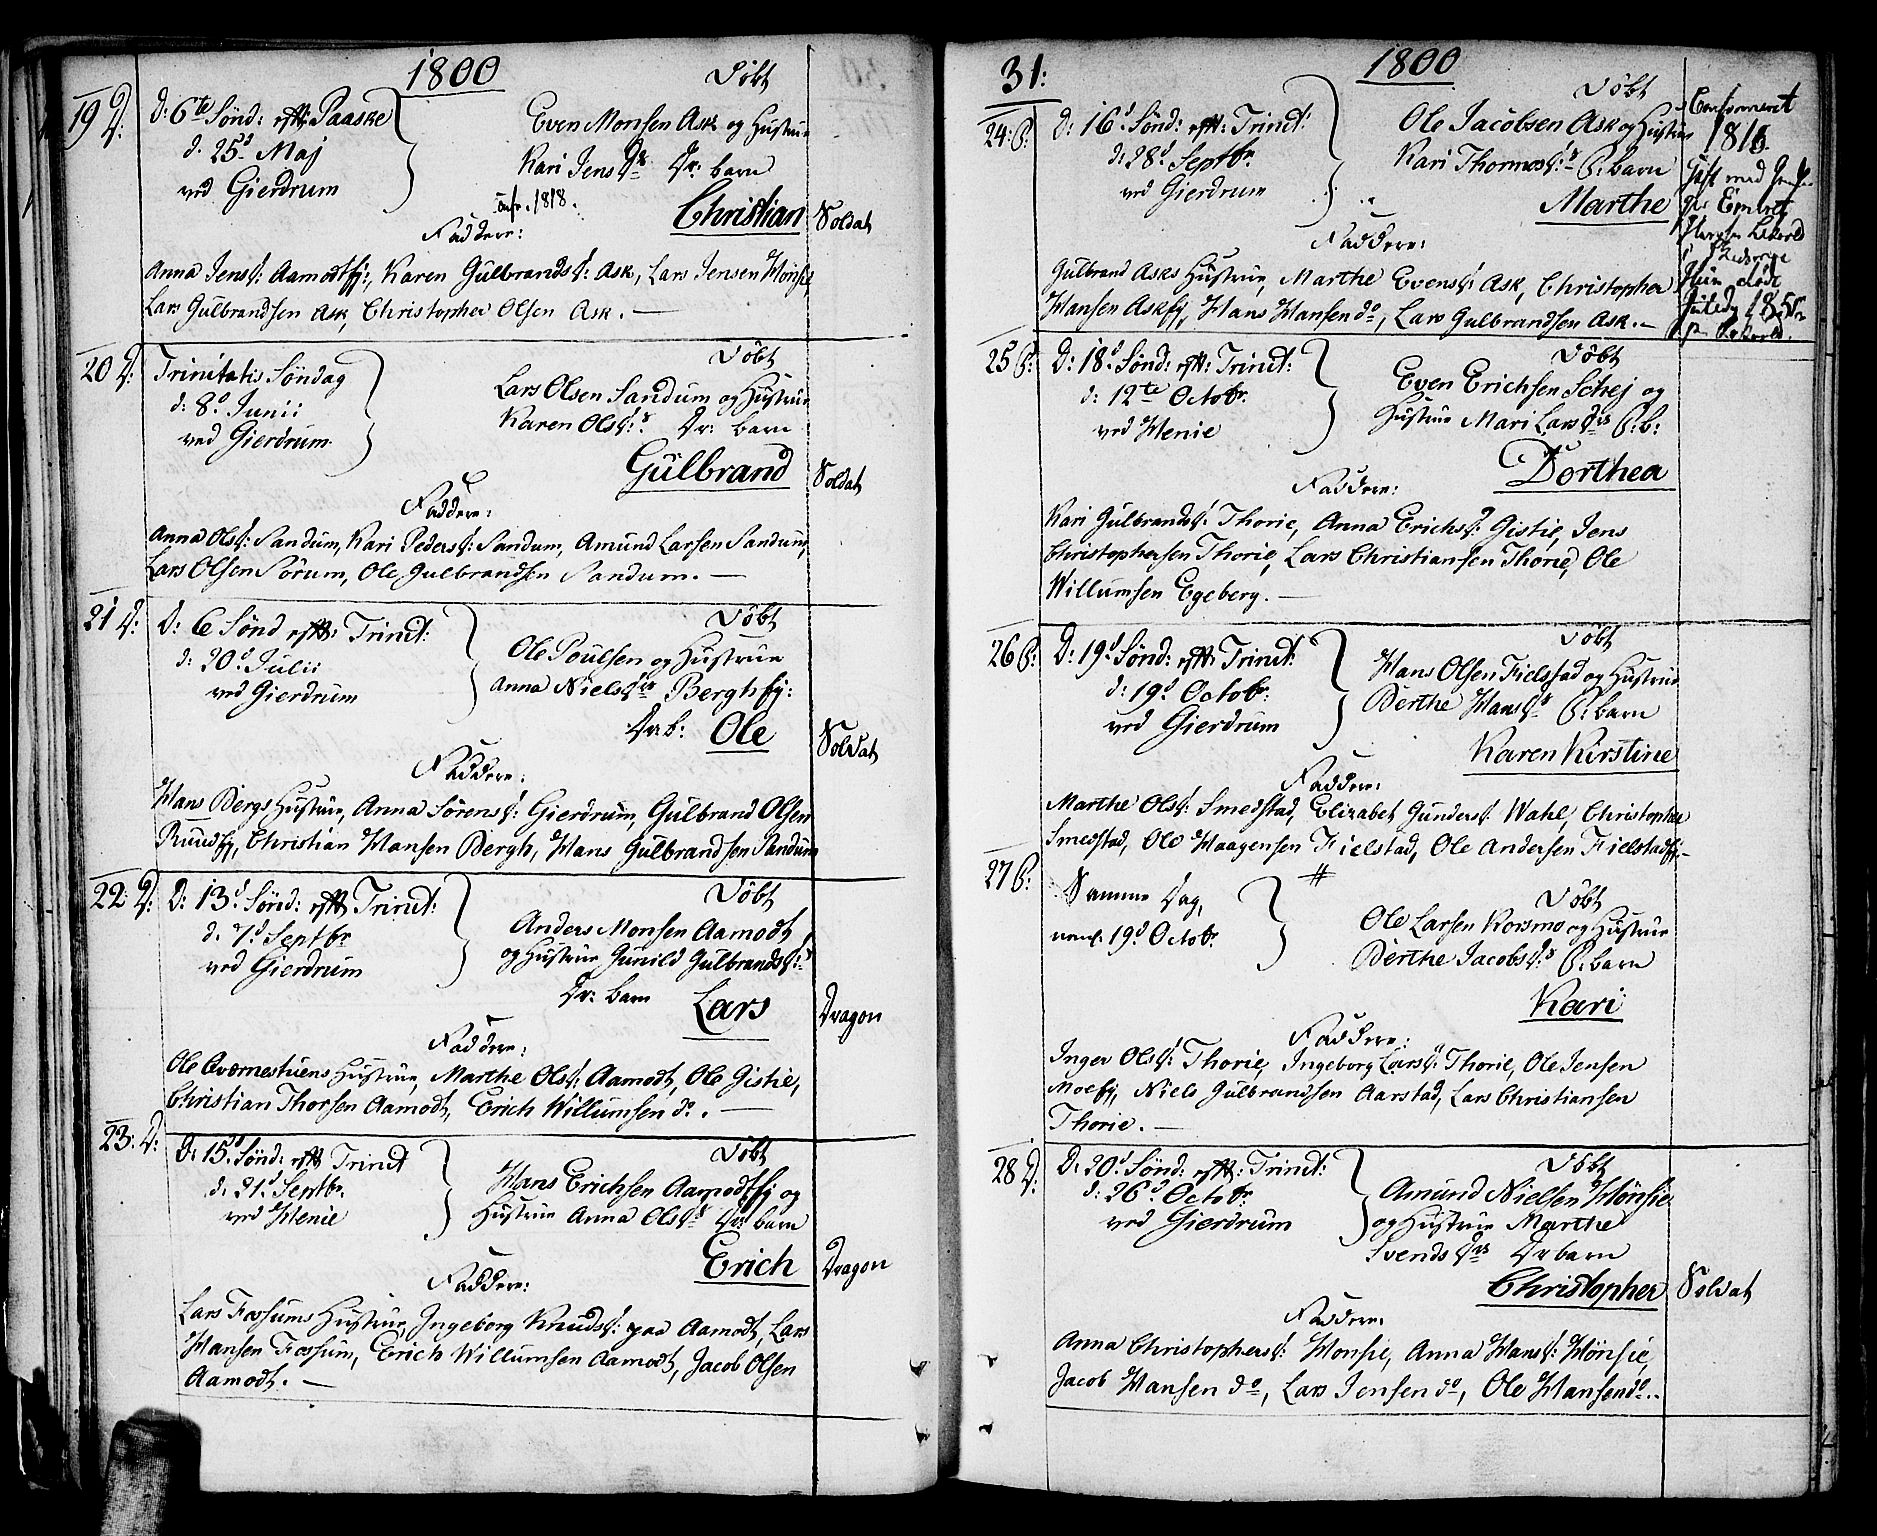 1800
19 D:
D: 6te Sönd: eftr: Paaske
d. 25de Maj
ved Gierdrum
Döbt
Even Monsen Ask og Hustrue
Kari Jens Dr Dr: barn
Conf. 1818.
Christian
Soldat
Faddere:
Anna Jens D: Aamodtej:, Karen Gulbrands D: Ask, Lars Jensen Hönsie,
Lars Gulbrandsen Ask, Christopher Olsen Ask. —
20 D:
Trinitatis Söndag
d: 8d Junii
ved Gierdrum
Döbt
Lars Olsen Sandum og Hustrue
Karen Ols D:r Dr: barn
Gulbrand
Soldat
Faddere:
Anna Ols D: Sandum, Kari Peders D: Sandum, Amund Larsen Sandum,
Lars Olsen Sörum, Ole Gulbrandsen Sandum. —
21 D:
D: 6 Sönd eftr: Trinit:
d: 20d Julii
ved Gierdrum
Döbt
Ole Poulsen og Hustrue
Anna Niels Dtr Berghej:
Dr b: Ole
Soldat
Faddere:
Hans Bergs Hustrue, Anna Sörens D: Gierdrum, Gulbrand Olsen
Ruudej, Christian Hansen Bergh, Hans Gulbrandsen Sandum
22 D:
D: 13d Sönd: eftr Trinit:
d. 7d Septbr
ved Gierdrum
Döbt
Anders Monsen Aamodt
og Hustrue Gunild Gulbrands D:r
Dr: barn Lars
Dragon
Faddere:
Ole Qværnestuens Hustrue, Marthe Ols D: Aamodt, Ole Gistie,
Christian Thorsen Aamodt, Erich Willumsen do. —
23: D:
D: 15d Sönd: eftr Trinit
d: 21d Septbr.
ved Henie
Döbt
Hans Erichsen Aamodtej og
Hustrue Anna Ols Dr Dr: barn
Erich
Dragon
Faddere:
Lars Fossums Hustrue, Ingeborg Knuds D: paa Aamodt, Lars
Hansen Fossum, Erich Willumsen Aamodt, Jacob Olsen
Aamodt. —
31:
1800
24: P:
D: 16d Sönd: eftr: Trinit:
d: 28d Septbr.
ved Gierdrum
Döbt
Ole Jacobsen Ask og Hustrue
Kari Thomas D:r P: barn
Marthe
Confirmeret
1816.
Gift med
Embret
Hun döde
1855
Faddere:
Gulbrand Asks Hustrue, Marthe Evens D: Ask, Christopher
Hansen Askej, Hans Hansen do, Lars Gulbrandsen Ask. —
25 P:
D: 18d Sönd: eftr: Trinit:
d: 12te Octobr.
ved Henie
Döbt
Even Erichsen Schej og
Hustrue Mari Lars Dtr P: b:
Dorthea
Faddere:
Kari Gulbrands D: Thorie, Anna Erichs D: Gistie, Jens
Christophersen Thorie, Lars Christiansen Thorie, Ole
Willumsen Egeberg. —
26 P:
D: 19d Sönd: eftr Trinit:
d: 19d Octobr:
ved Gierdrum
Döbt
Hans Olsen Fielstad og Hustrue
Berthe Hans Dr P: barn
Karen Kirstine
Faddere:
Marthe Ols D: Smedstad, Elizabet Gunders D. Wahl, Christopher
Smedstad, Ole Haagensen Fielstad, Ole Andersen Fielstadej —
27 P:
Samme Dag,
neml. 19d Octobr.
Döbt
Ole Larsen Korsmo og Hustrue
Berthe Jacobs Dr P: barn
Kari
Faddere:
Inger Ols D: Thorie, Ingeborg Lars D: Thorie, Ole Jensen
Moeej, Niels Gulbrandsen Aarstad, Lars Christiansen
Thorie. —
28 D:
D: 20d Sönd: eftr: Trinit:
d: 26d Octobr.
ved Gierdrum
Döbt
Amund Nielsen Hönsie
og Hustrue Marthe
Svends Dtr Dr barn
Christopher
Soldat
Faddere:
Anna Christophers D: Hönsie, Anna Hans D: Hönsie,
Jacob Hansen do, Lars Jensen do, Ole Hansen do.